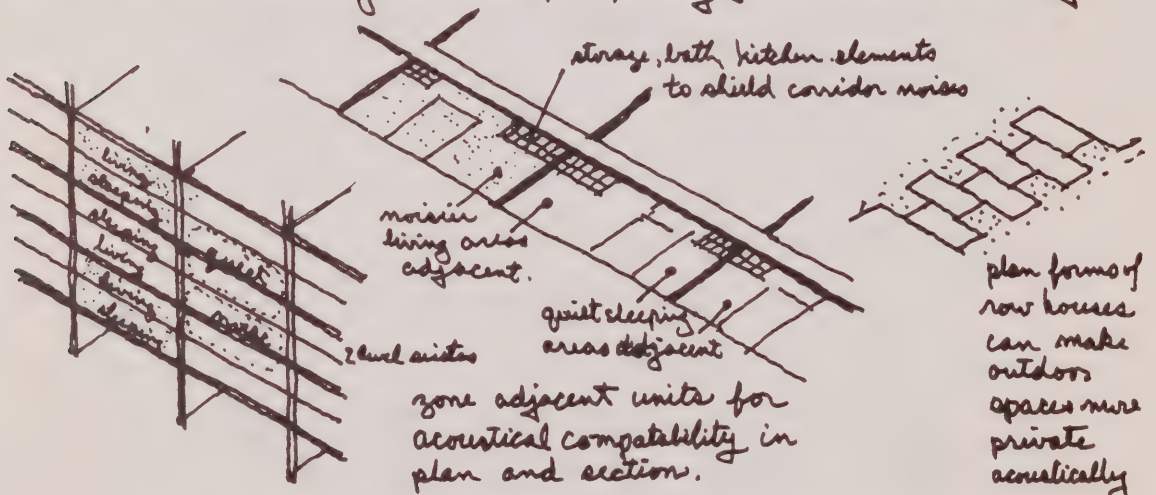 storage, bath, kitchen elements
to shield corridor noises
living
sleeping
sleeping
living
living
sleeping
quiet
2 level suites
noisier
living areas
adjacent.
quiet sleeping
areas adjacent
zone adjacent units for
acoustical compatability in
plan and section.
plan forms of
row houses
can make
outdoor
spaces more
private
acoustically